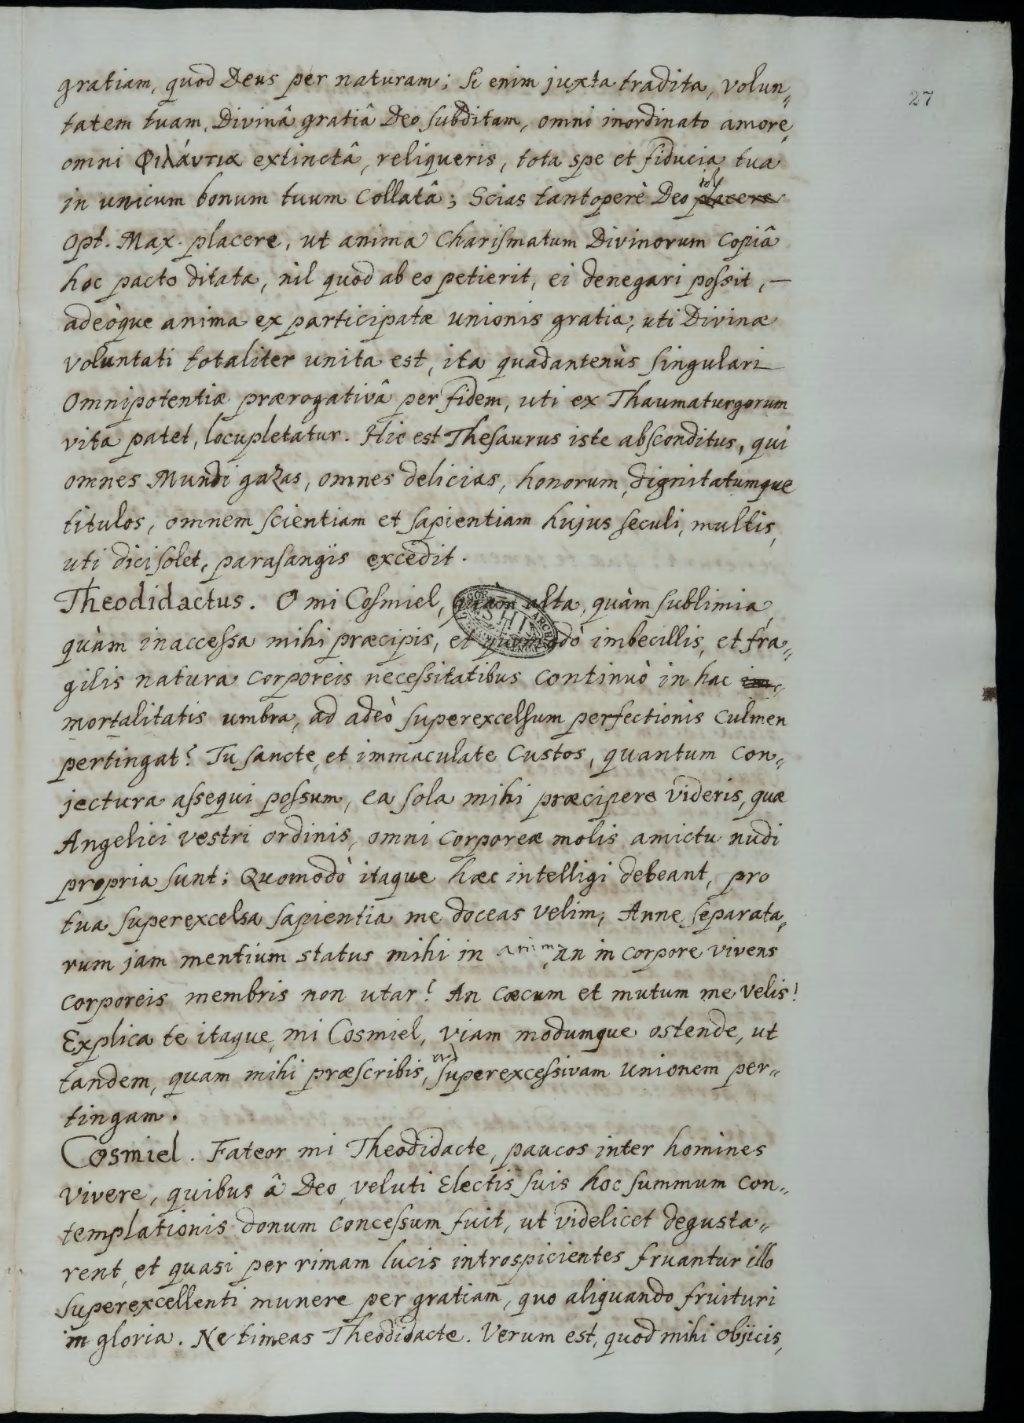 27
gratiam, quod Deus per naturam; Si enim juxta tradita, volun„
tatem tuam, Divinâ gratiâ Deo subditam, omni inordinato amore,
omni Φιλάυτια extinctâ, reliqueris, tota spe et fiducia tua
in unicum bonum tuum collatâ; Scias tantoperè Deo placere
Opt. Max. placere, ut anima Charismatum Divinorum copiâ
hoc pacto ditata, nil quod ab eo petierit, ei denegari possit, —
adeòque anima ex participatæ unionis gratia, uti Divinæ
voluntati totaliter unita est, ita quadantenùs singulari
Omnipotentiæ prærogativâ per fidem, uti ex Thaumaturgorum
vita patet, locupletatur. Hic est Thesaurus iste absconditus, qui
omnes Mundi gazas, omnes delicias, honorum, dignitatumque
titulos, omnem scientiam et sapientiam hujus seculi, multis,
uti dici solet, parasangis excedit.
Theodidactus. O mi Cosmiel, quàm alta, quàm sublimia,
quàm inaccessa mihi præcipis, et quomodò imbecillis, et fra„
gilis natura corporeis necessitatibus continuò in hac
mortalitatis umbra, ad adeò superexcelsum perfectionis culmen
pertingat? Tu sancte, et immaculate Custos, quantum con„
jectura assequi possum, ea sola mihi præcipere videris, quæ
Angelici vestri ordinis, omni corporeæ molis amictu nudi
propria sunt; Quomodò itaque hæc intelligi debeant, pro
tua superexcelsa sapientia me doceas velim; Anne separata„
rum jam mentium status mihi in An in corpore vivens
corporeis membris non utar? An cœcum et mutum me velis?
Explica te itaque, mi Cosmiel, viam modumque ostende, ut
tandem, quam mihi præscribis, superexcessivam unionem per„
tingam.
Cosmiel. Fateor mi Theodidacte, paucos inter homines
vivere, quibus â Deo, veluti Electis suis hoc summum con„
templationis donum concessum fuit, ut videlicet degusta„
rent, et quasi per rimam lucis introspicientes fruantur illo
superexcellenti munere per gratiam, quo aliquando fruituri
in gloria. Ne timeas Theodidacte. Verum est, quod mihi objicis,